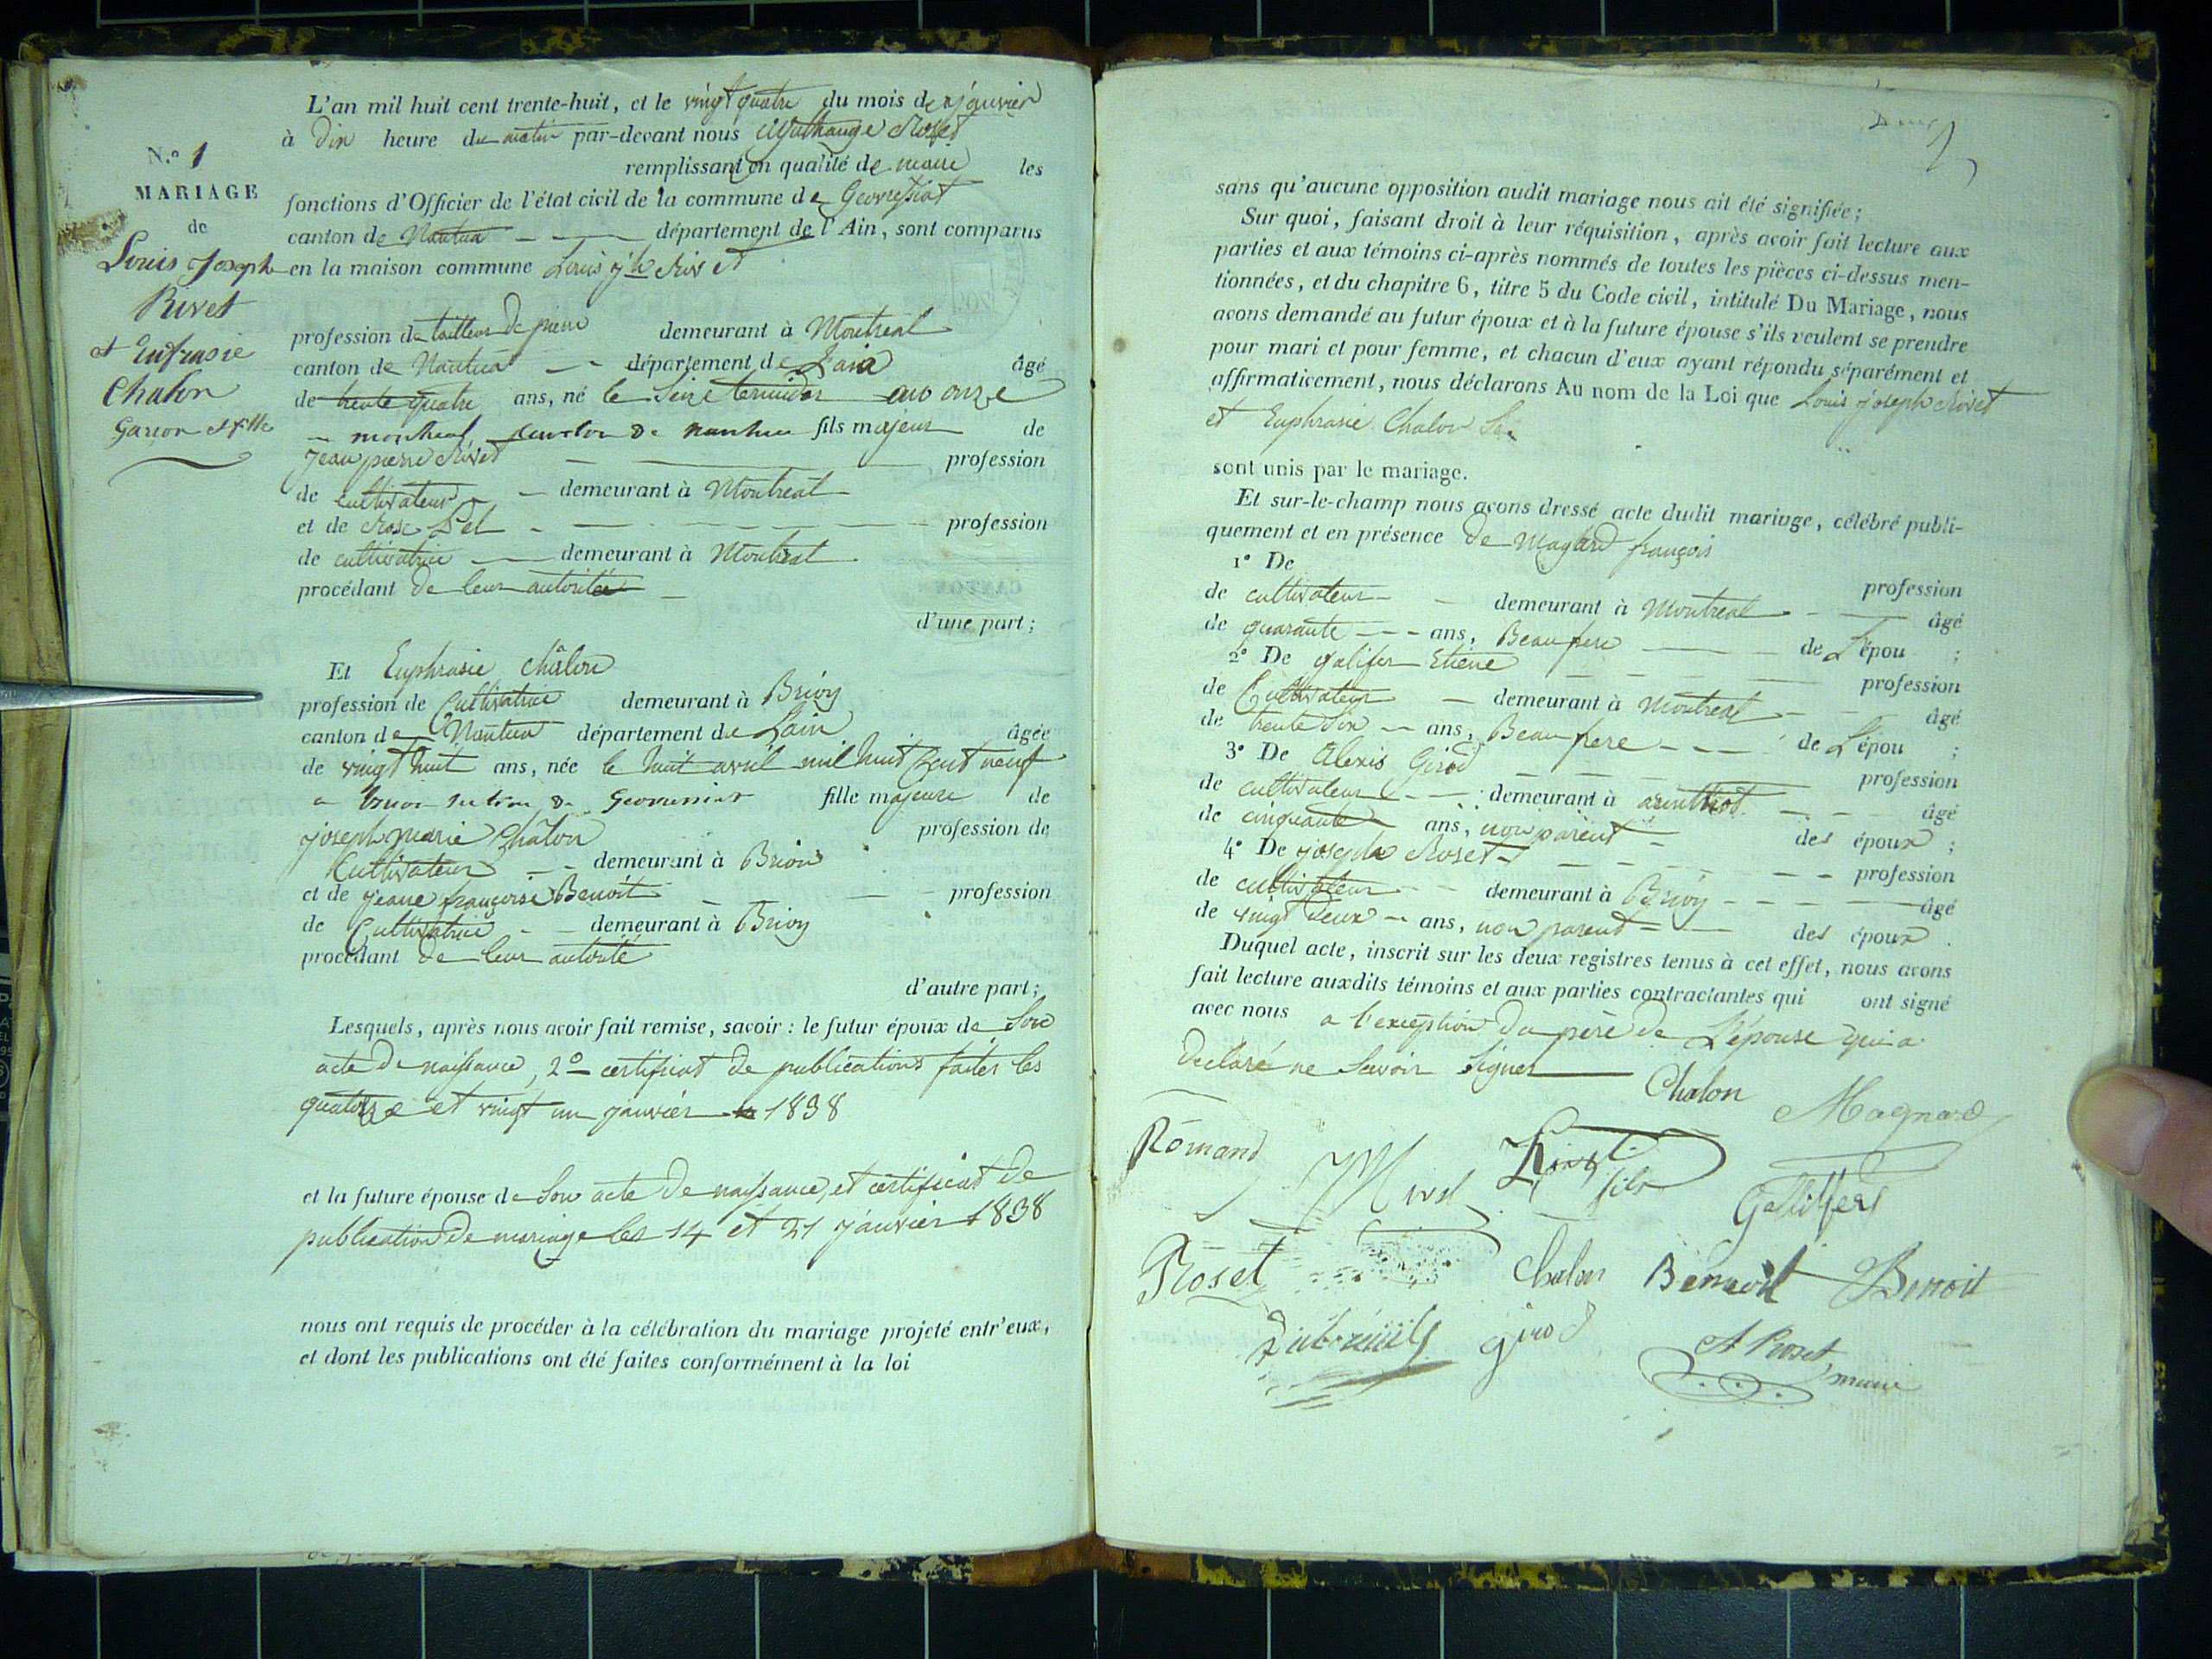 N.° 1
MARIAGE
de
Louis Joseph
Rivet
et Eufrasie
Chalon
Garcon et fille
L'an mil huit cent trente-huit, et le vingt quatre du mois de janvier
à dix heure du matin par-devant nous Roset
remplissant en qualité de maire les
fonctions d'Officier de l'état civil de la commune de Geovressiat
canton de Nantua département de l'Ain, sont comparus
en la maison commune Louis jh Rivet
profession de tailleur de pierre demeurant à Montreal
canton de Nantua département de Lain âgé
de trente quatre ans, né le Seize termidor an onze
a montreal, canton de nantua fils majeur de
Jean pierre Rivet profession
de cultivateur demeurant à Montreal
et de Rose profession
de cultivatrice demeurant à Montreal
procédant de leur autorité
d'une part;
Et Euphrasie châlon
profession de Cultivatrice demeurant à Brion
canton de Nantua département de Lain âgée
de vingt huit ans, née le huit avril mil huit Cent neuf
a brion section de Geovressiat fille majeure de
joseph marie Châlon profession de
Cultivateur demeurant à Brion
et de jeane françoise Benoit profession
de Cultivatrice demeurant à Brion
procédant de leur autorité
d'autre part;
Lesquels, après nous avoir fait remise, savoir : le futur époux de Son
acte de naissance, 2° certificat de publications faites les
quatorze et vingt un janvier 1838
et la future épouse de Son acte de naissance, et certificat de
publication de mariage les 14 et 21 janvier 1838
nous ont requis de procéder à la célébration du mariage projeté entr'eux,
et dont les publications ont été faites conformément à la loi
sans qu'aucune opposition audit mariage nous ait été signifiée;
Sur quoi, faisant droit à leur réquisition, après avoir fait lecture aux
parties et aux témoins ci-après nommés de toutes les pièces ci-dessus men-
tionnées, et du chapitre 6, titre 5 du Code civil, intitulé Du Mariage, nous
avons demandé au futur époux et à la future épouse s'ils veulent se prendre
pour mari et pour femme, et chacun d'eux ayant répondu séparément et
affirmativement, nous déclarons Au nom de la Loi que Louis joseph Rivet
et Euphrasie Chalon
sont unis par le mariage.
Et sur-le-champ nous avons dressé acte dudit mariage, célébré publi-
quement et en présence de Magard françois
1° De profession
de cultivateur demeurant à Montreal âgé
de quarante ans, Beaufrere de L'épou ;
2° De galifer Etiene profession
de Cultivateur demeurant à Montreal âgé
de trente six ans, Beaufrere de L'épou ;
3° De Alexis Girod profession
de cultivateur demeurant à âgé
de cinquante ans, non parent des époux ;
4° De joseph Roset profession
de cultivateur demeurant à Brion âgé
de vingt deux ans, non parent des époux .
Duquel acte, inscrit sur les deux registres tenus à cet effet, nous avons
fait lecture auxdits témoins et aux parties contractantes qui ont signé
avec nous a l'exception du père de L'épouse qui a
declaré ne Savoir Signer
Chalon Magnard
Romand Rivet fils
Roset Chalon Benoit Benoit
girod A Roset maire